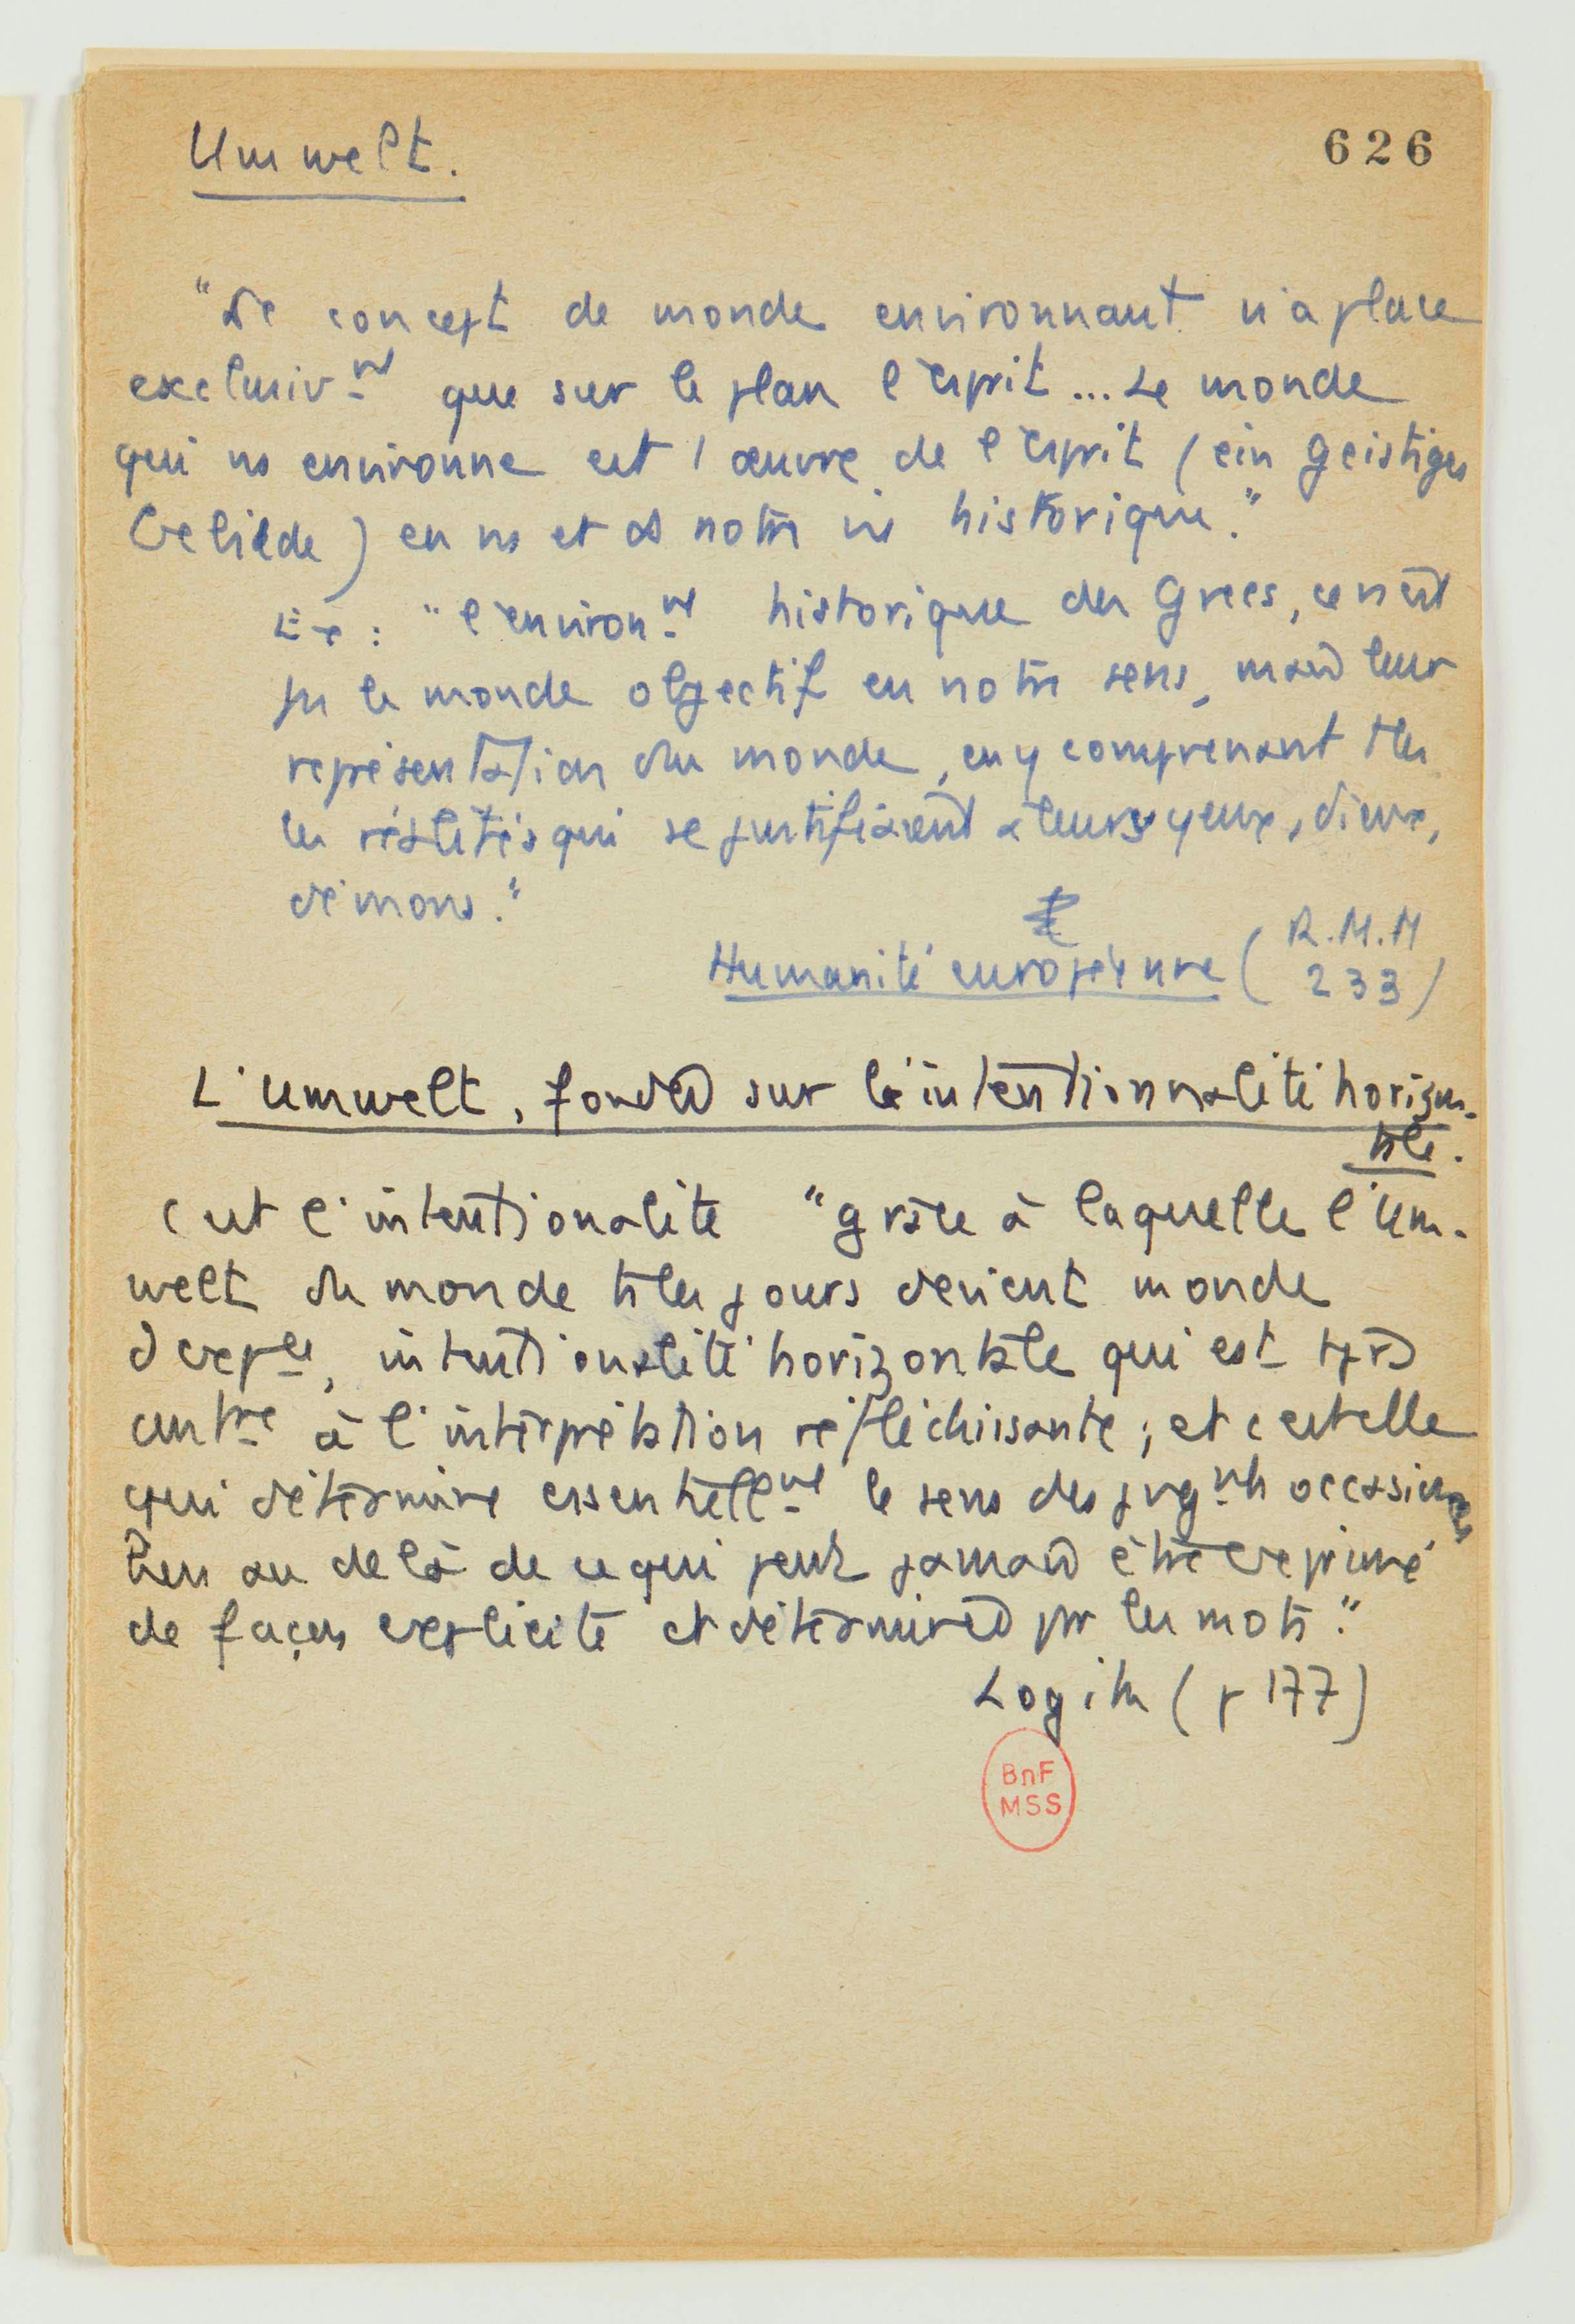 Umwelt.
626
"Le concept de monde environnant n'a place
exclusivnt que sur le plan l'esprit... Le monde
qui ns environne est l'œuvre de l'esprit (ein geistiges
Gebilde) en ns et ds notre vie historique."
Ex : "l'environnt historique des Grecs, ce n'est
pas le monde objectif en notre sens, mais leur
représentation du monde, en y comprenant ttes
les réalités qui se justifiaient à leurs yeux, dieux,
démons."
Humanité européenne (R.M.M
233)
L'Umwelt, fondée sur l'intentionnalité horizon-
tale.
C'est l'intentionalité "grâce à laquelle l'Um-
welt du monde ts les jours devient monde
d'expce, intentionalité horizontale qui est
antre à l'interprétation réfléchissante ; et c'est elle
qui détermine essentiellnt le sens des jugnts occasionnels
bien au delà de ce qui peut jamais être exprimé
de façon explicite et déterminée par les mots."
Logik (p 177)
BnF
MSS